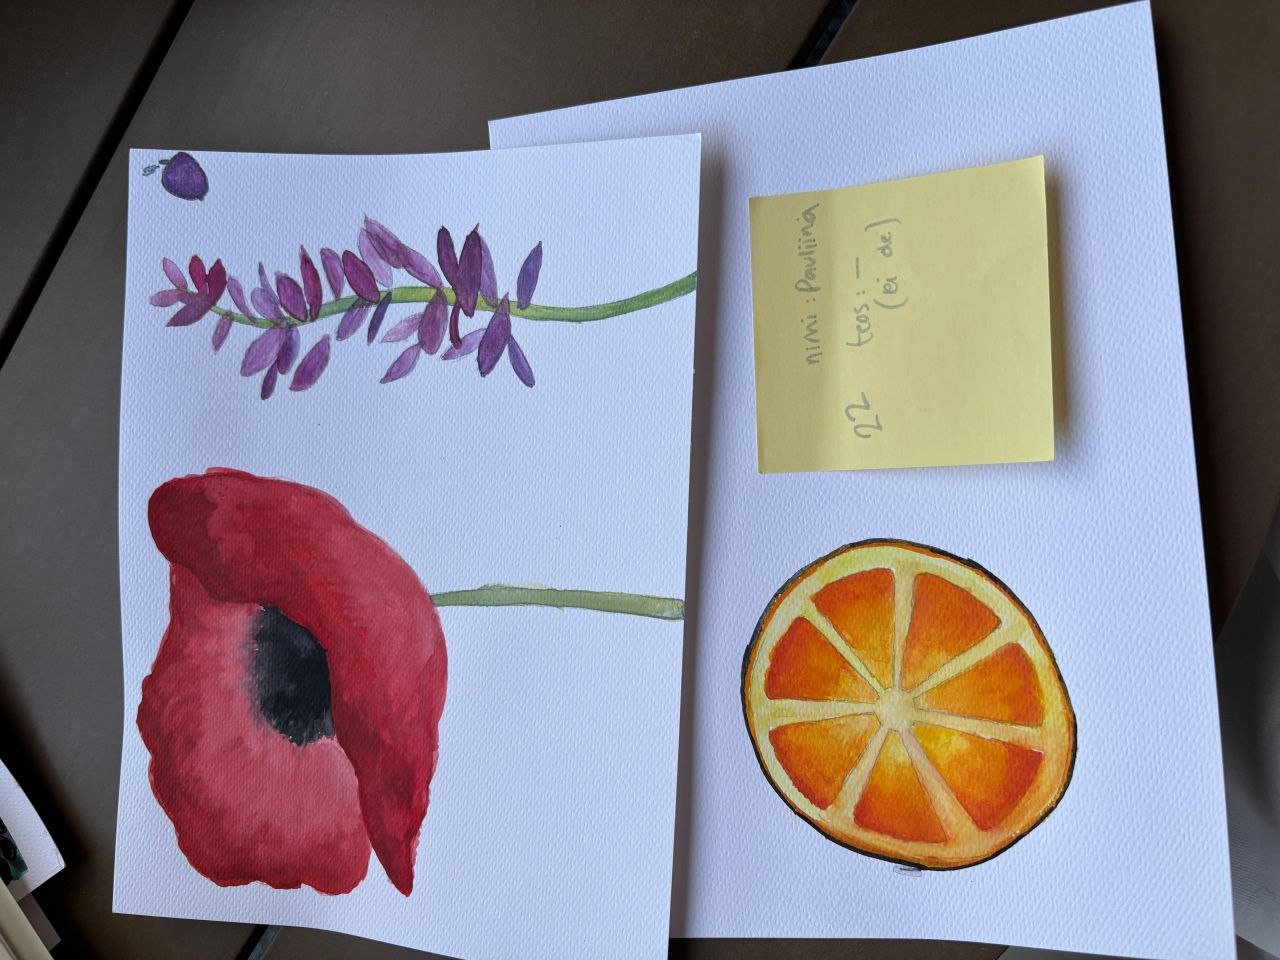 nimi: Pauliina
22 teos: —
(ei de)